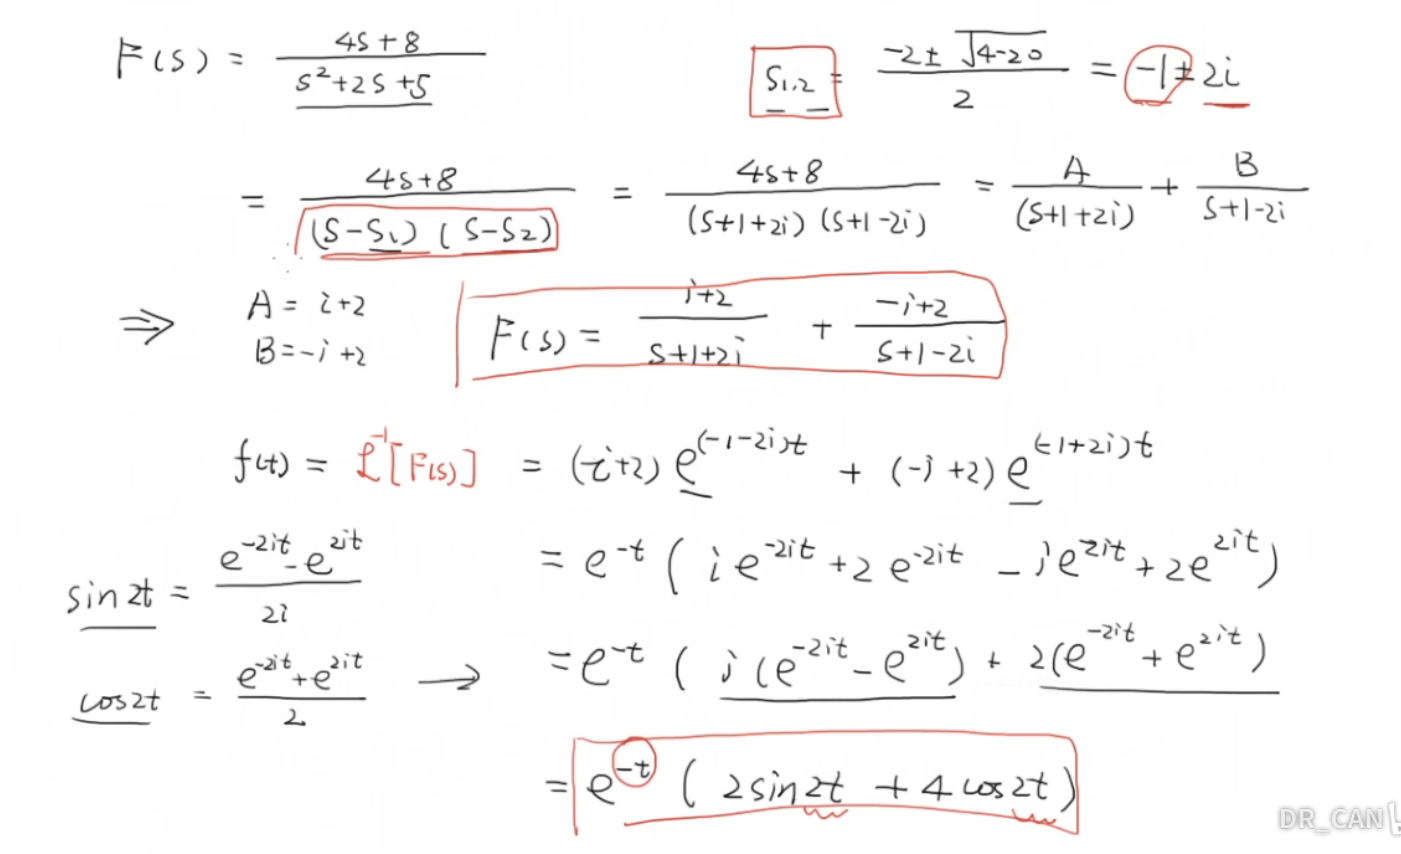 F(s) = \frac{4s+8}{s^2+2s+5}    s_{1,2} = \frac{-2±\sqrt{4-20}}{2} = -1±2i
= \frac{4s+8}{(s-s_1)(s-s_2)} = \frac{4s+8}{(s+1+2i)(s+1-2i)} = \frac{A}{(s+1+2i)} + \frac{B}{s+1-2i}
⇒ A = i+2    F(s) = \frac{i+2}{s+1+2i} + \frac{-i+2}{s+1-2i}
B = -i+2
f(t) = ℒ^{-1}[F(s)] = (i+2)e^{(-1-2i)t} + (-i+2)e^{(-1+2i)t}
sin2t = \frac{e^{-2it}-e^{2it}}{2i}    = e^{-t}(ie^{-2it}+2e^{-2it}-ie^{2it}+2e^{2it})
cos2t = \frac{e^{-2it}+e^{2it}}{2} → = e^{-t}(i(e^{-2it}-e^{2it}) + 2(e^{-2it}+e^{2it})
= e^{-t}(2sin2t + 4cos2t)
DR_CAN